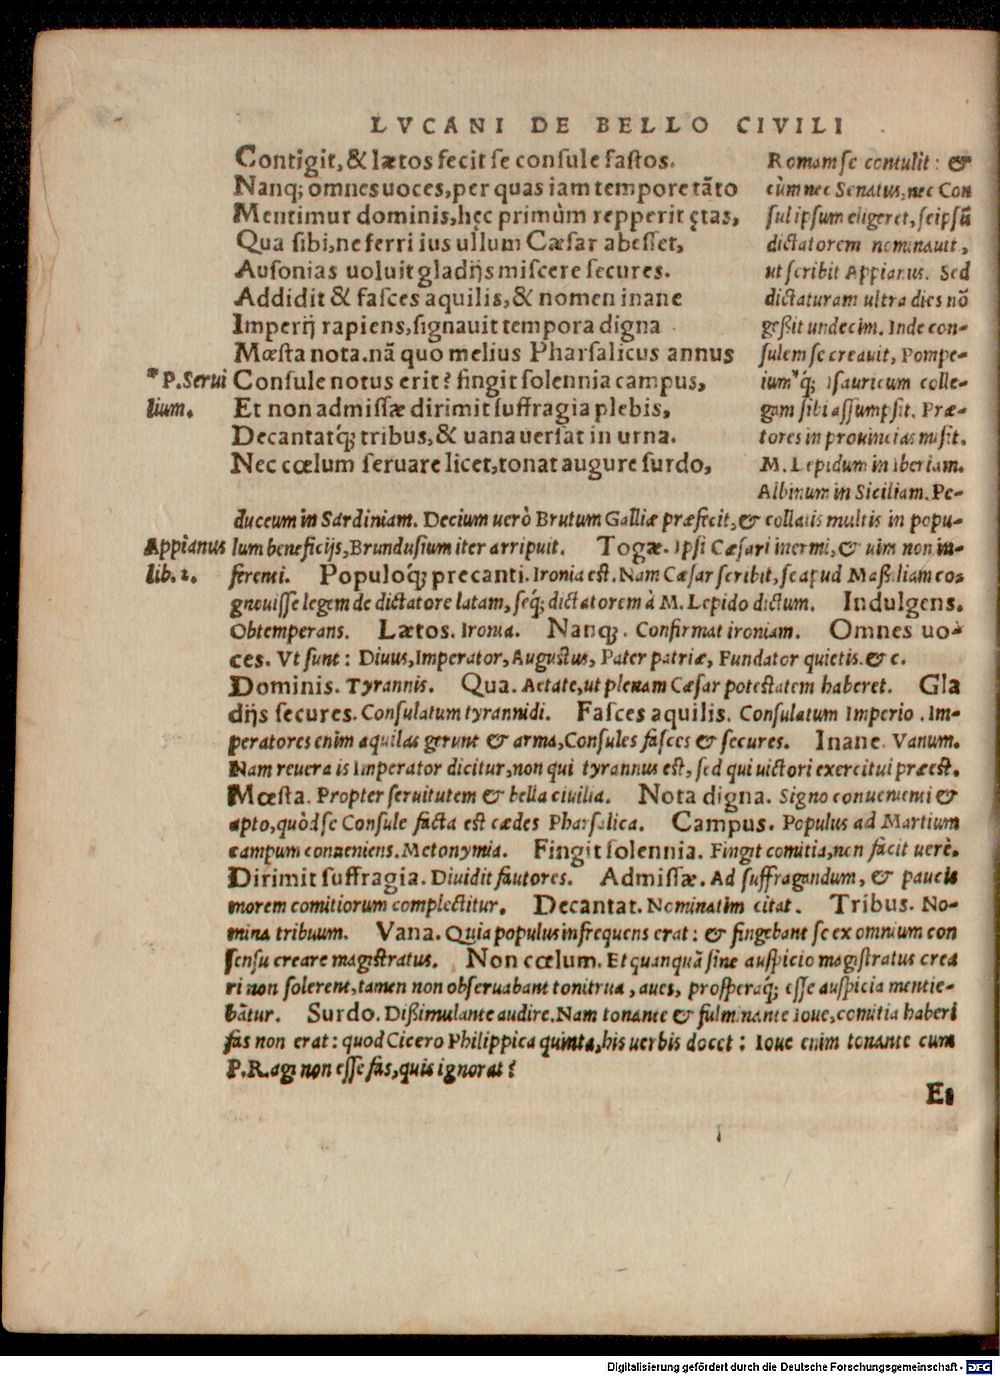 LVCANI DE BELLO CIVILI
Contigit, & lætos fecit se consule fastos.
Nanq; omnes uoces, per quas iam tempore tãto
Mentimur dominis, hęc primùm repperit ętas,
Qua sibi, ne ferri ius ullum Cæsar abesset,
Ausonias uoluit gladijs miscere secures.
Addidit & fasces aquilis, & nomen inane
Imperij rapiens, signauit tempora digna
Mœsta nota. nã quo melius Pharsalicus annus
Consule notus erit? fingit solennia campus,
Et non admissæ dirimit suffragia plebis,
Decantatq́; tribus, & uana uersat in urna.
Nec cœlum seruare licet, tonat augure surdo,
*P. Serui
lium.
Romam se contulit: &
cùm nec Senatus, nec Con
sul ipsum eligeret, seipsũ
dictatorem nominauit,
ut scribit Appianus. Sed
dictaturam ultra dies nõ
geßit undecim. Inde con-
sulem se creauit, Pompe-
ium*q́; Isauricum colle-
gam sibi assumpsit. Præ-
tores in prouincias misit.
M. Lepidum in Iberiam.
Albinum in Siciliam. Pe-
duceum in Sardiniam. Decium uerò Brutum Galliæ præfecit, & collatis multis in popu-
Appianus
lib. 2.
lum beneficijs, Brundusium iter arripuit. Togæ. Ipsi Cæsari inermi, & uim non in-
ferenti. Populoq́; precanti. Ironia est. Nam Cæsar scribit, se apud Maßiliam co-
gnouisse legem de dictatore latam, seq́; dictatorem à M. Lepido dictum. Indulgens.
Obtemperans. Lætos. Ironia. Nanq;. Confirmat ironiam. Omnes uo-
ces. Vt sunt: Diuus, Imperator, Augustus, Pater patriæ, Fundator quietis. & c.
Dominis. Tyrannis. Qua. Aetate, ut plenam Cæsar potestatem haberet. Gla
dijs secures. Consulatum tyrannidi. Fasces aquilis. Consulatum Imperio. Im-
peratores enim aquilas gerunt & arma, Consules fasces & secures. Inane. Vanum.
Nam reuera is Imperator dicitur, non qui tyrannus est, sed qui uictori exercitui præest.
Mœsta. Propter seruitutem & bella ciuilia. Nota digna. Signo conuenienti &
apto, quòd se Consule facta est cædes Pharsalica. Campus. Populus ad Martium
campum conueniens. Metonymia. Fingit solennia. Fingit comitia, non facit uerè.
Dirimit suffragia. Diuidit fautores. Admissæ. Ad suffragandum, & paucis
morem comitiorum complectitur. Decantat. Nominatim citat. Tribus. No-
mina tribuum. Vana. Quia populus infrequens erat: & fingebant se ex omnium con
sensu creare magistratus. Non cœlum. Et quanquã sine auspicio magistratus crea
ri non solerent, tamen non obseruabant tonitrua, aues, prosperaq́; esse auspicia mentie-
bãtur. Surdo. Dißimulante audire. Nam tonante & fulminante Ioue, comitia haberi
fas non erat: quod Cicero Philippica quinta, his uerbis docet: Ioue enim tonante cum
P. R. agi non esse fas, quis ignorat?
Et
Digitalisierung gefördert durch die Deutsche Forschungsgemeinschaft - DFG